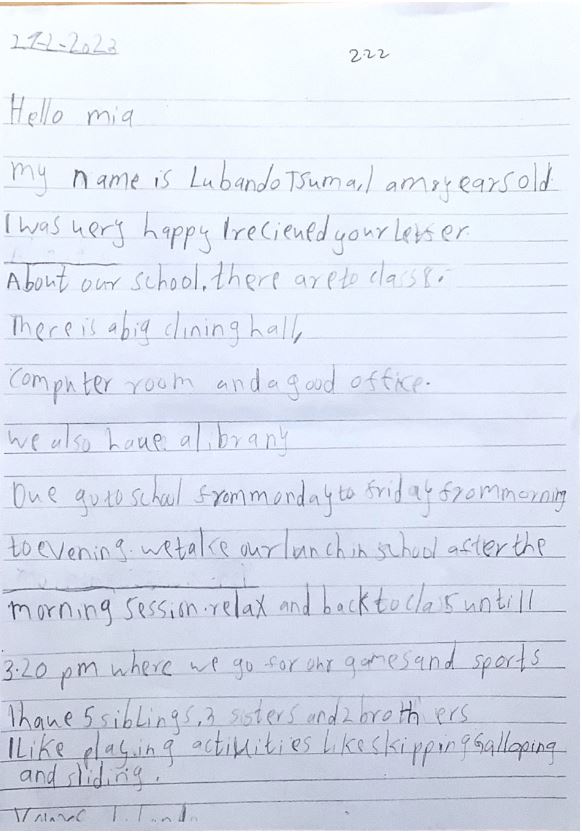 27-2-2023
222
Hello mia
my name is Lubando Tsuma, I am 8 years old.
I was very happy I recieved your letter.
About our school, there are to class 8.
There is a big dining hall,
Computer room and a good office.
we also have a library
Oue go to school from monday to friday from morning
to evening. we take our lunch in school after the
morning session. relax and back to class untill
3.20 pm where we go for our games and sports
I have 5 siblings, 3 sisters and 2 brothers
I Like playing activities like skipping Galloping
and sliding.